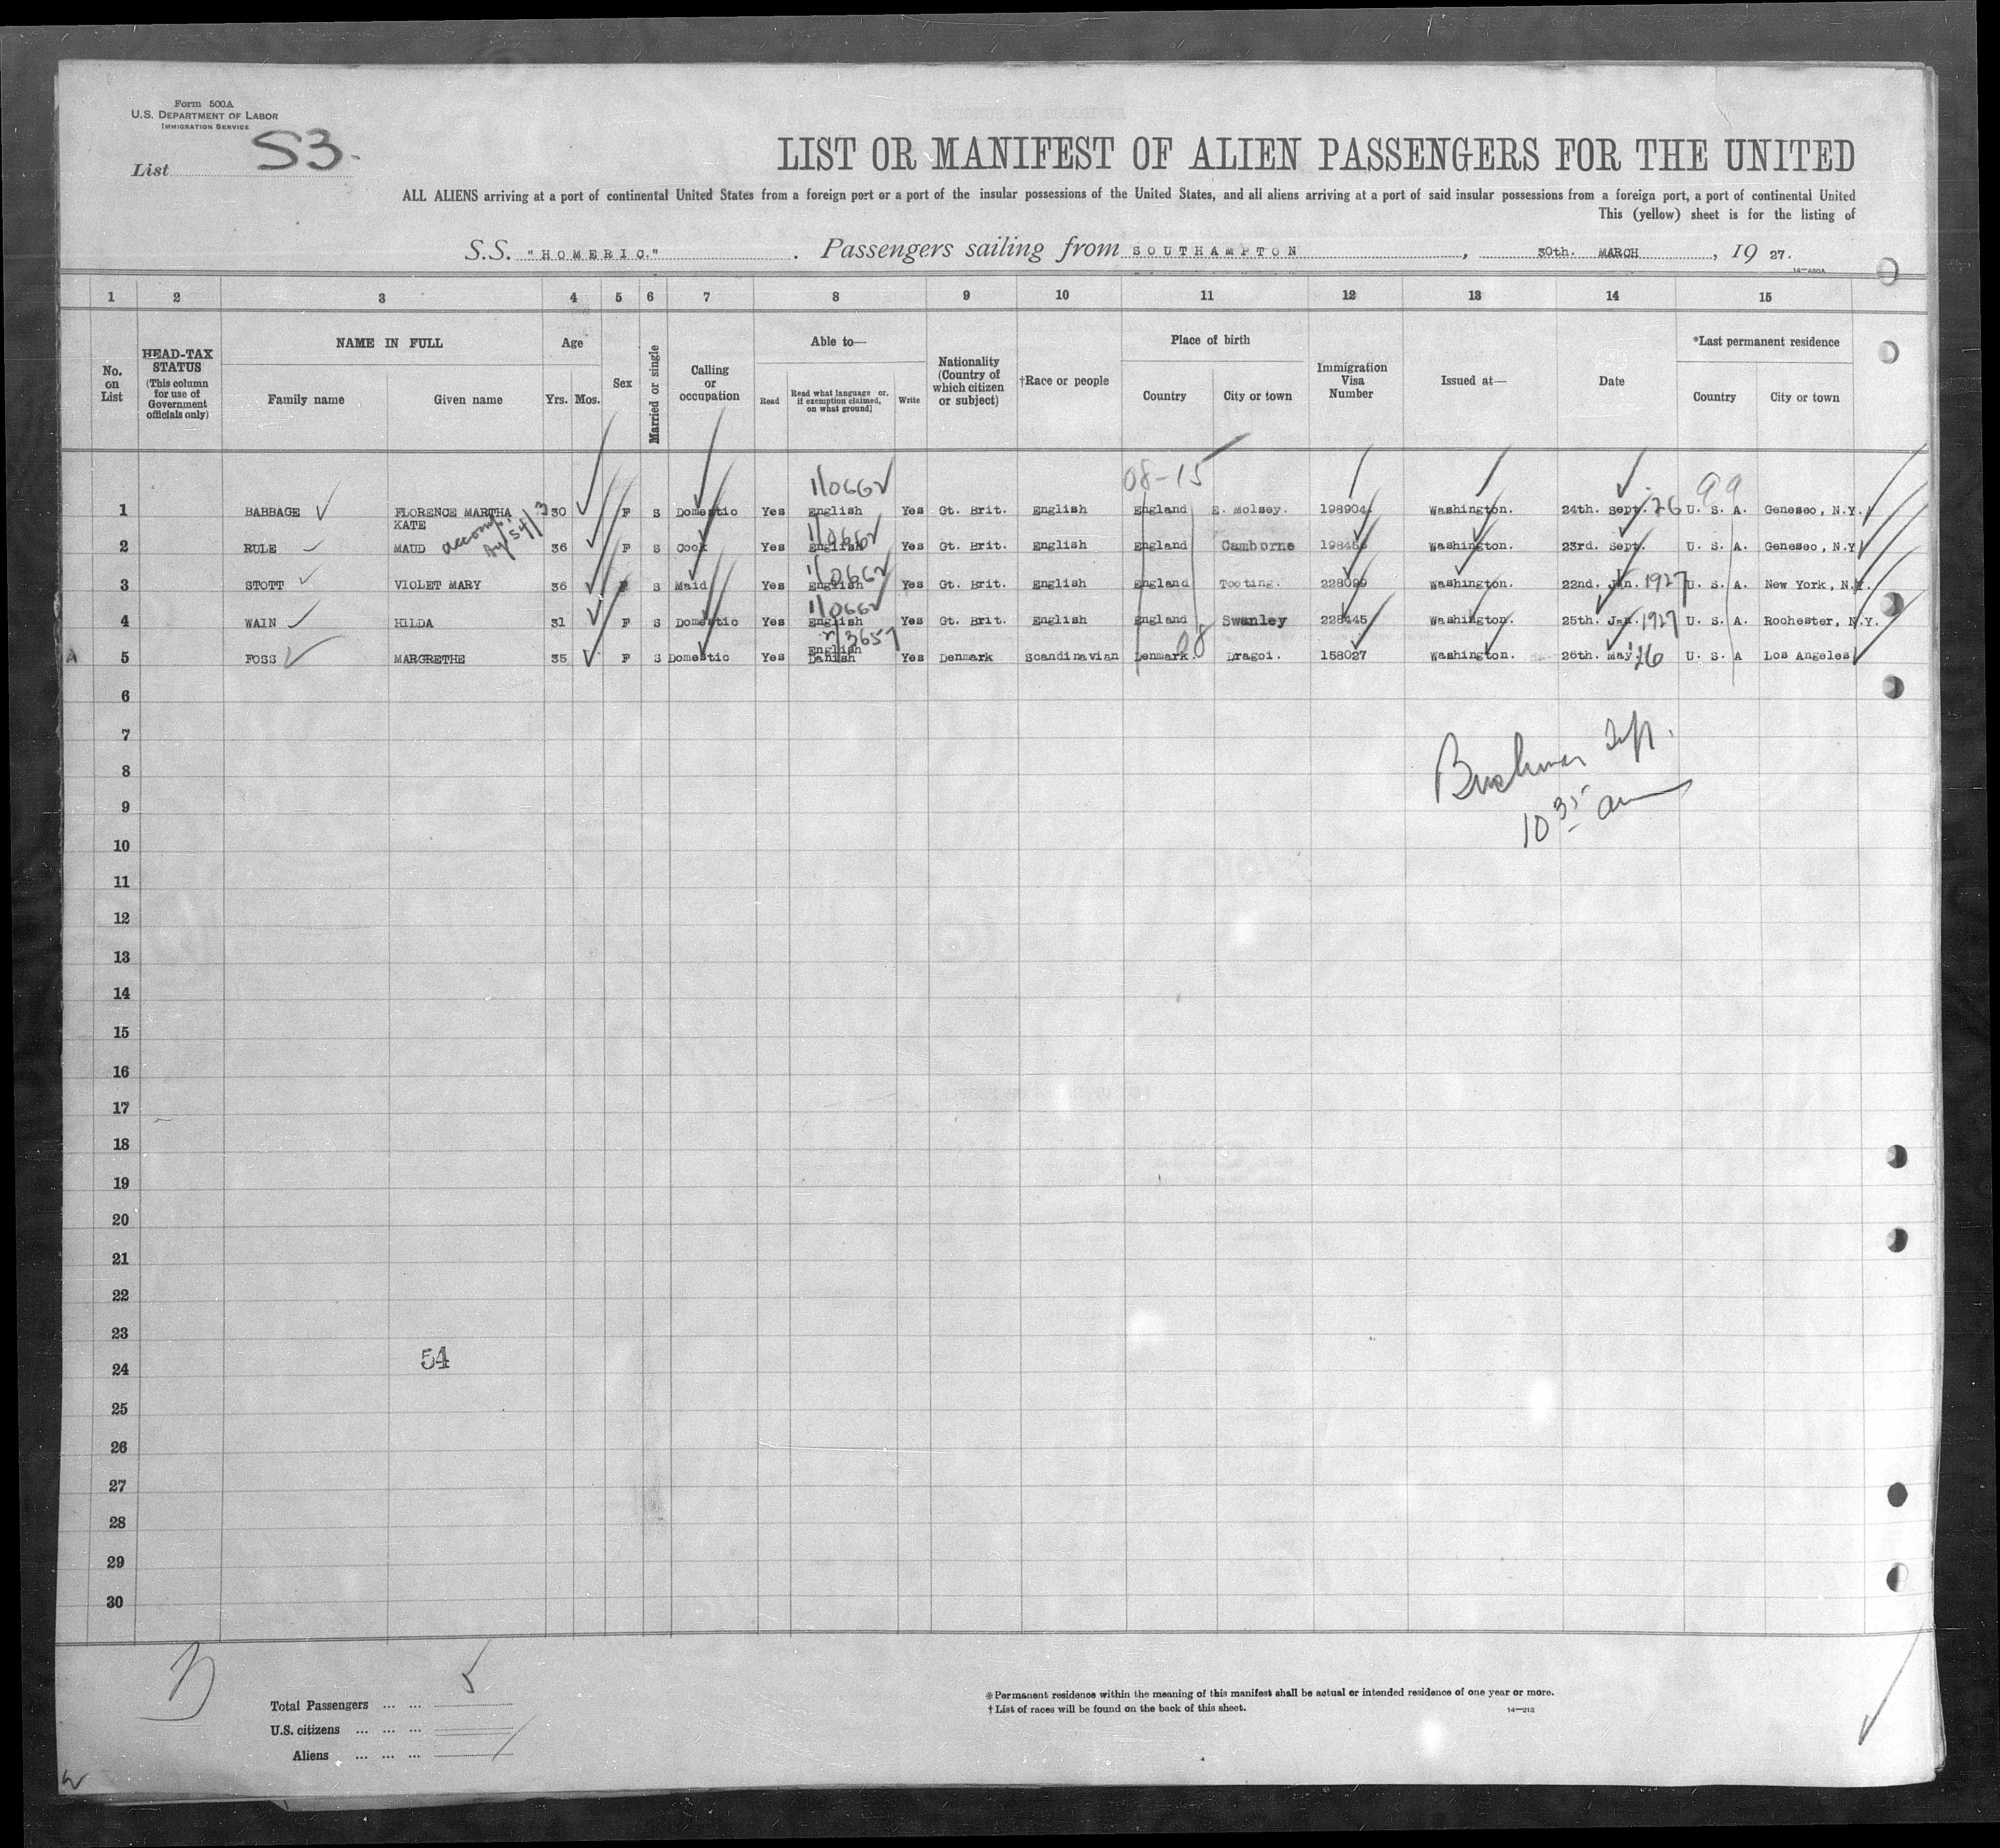 Form 500A
U.S. DEPARTMENT OF LABOR
IMMIGRATION SERVICE
List 53.
LIST OR MANIFEST OF ALIEN PASSENGERS FOR THE UNITED
ALL ALIENS arriving at a port of continental United States from a foreign port or a port of the insular possessions of the United States, and all aliens arriving at a port of said insular possessions from a foreign port, a port of continental United
This (yellow) sheet is for the listing of
S.S. "HOMERIC." Passengers sailing from SOUTHAMPTON, 30th. MARCH, 1927.
14—430A
1 2 3 4 5 6 7 8 9 10 11 12 13 14 15
No. on List
HEAD-TAX STATUS (This column for use of Government officials only)
NAME IN FULL
Family name Given name
Age
Yrs. Mos.
Sex
Married or single
Calling or occupation
Able to—
Read Read what language or, if exemption claimed, on what ground) Write
Nationality (Country of which citizen or subject)
†Race or people
Place of birth
Country City or town
Immigration Visa Number
Issued at—
Date
*Last permanent residence
Country City or town
1/0662 08-15 99
1 BABBAGE FLORENCE MARTHA KATE 30 F S Domestic Yes English Yes Gt. Brit. English England E. Molsey. 198904. Washington. 24th. Sept. 26 U. S. A. Geneseo, N.Y.
accomp. by 54/3
1/0662
2 RULE MAUD 36 F S Cook Yes English Yes Gt. Brit. English England Camborne Washington. 23rd. Sept. U. S. A. Geneseo, N.Y
1/0662
3 STOTT VIOLET MARY 36 F S Maid Yes English Yes Gt. Brit. English England Tooting. 228099 Washington. 22nd. Jan. 1927 U. S. A. New York, N.Y.
1/0662
4 WAIN HILDA 31 F S Domestic Yes English Yes Gt. Brit. English England Swanley 228445 Washington. 25th. Jan. 1927 U. S. A. Rochester, N.Y.
3657 08
A 5 FOSS MARGRETHE 35 F S Domestic Yes English Danish Yes Denmark Scandinavian Denmark. Dragoi. 158027 Washington. 26th. May. 26 U. S. A Los Angeles
6
7
8
9
10
10 35 am
11
12
13
14
15
16
17
18
19
20
21
22
23
24
54
25
26
27
28
29
30
Total Passengers ... ... 5
U.S. citizens ... ... ...
Aliens ... ... ...
*Permanent residence within the meaning of this manifest shall be actual or intended residence of one year or more.
†List of races will be found on the back of this sheet.
14—213